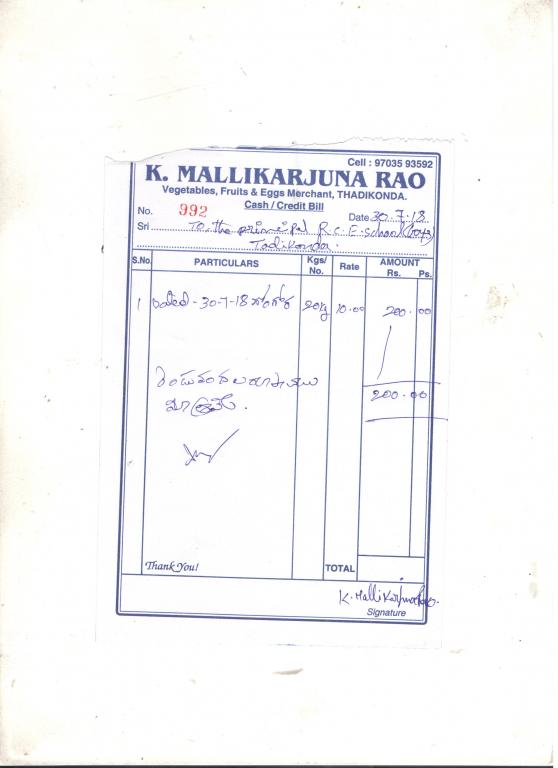 Cell : 97035 93592
K. MALLIKARJUNA RAO
Vegetables, Fruits & Eggs Merchant, THADIKONDA.
Cash / Credit Bill
No. 992 Date 30.7.18
Sri To the principal R.C.E. school (Boys)
Tadikonda.
S.No. PARTICULARS Kgs/No. Rate AMOUNT Rs. Ps.
1 Dated - 30-7-18 గోంగూర 20kg 10.00 200.00
రెండువందల రూపాయలు
మాత్రమే.
200.00
Thank You! TOTAL
K. Mallikarjuna Rao.
Signature